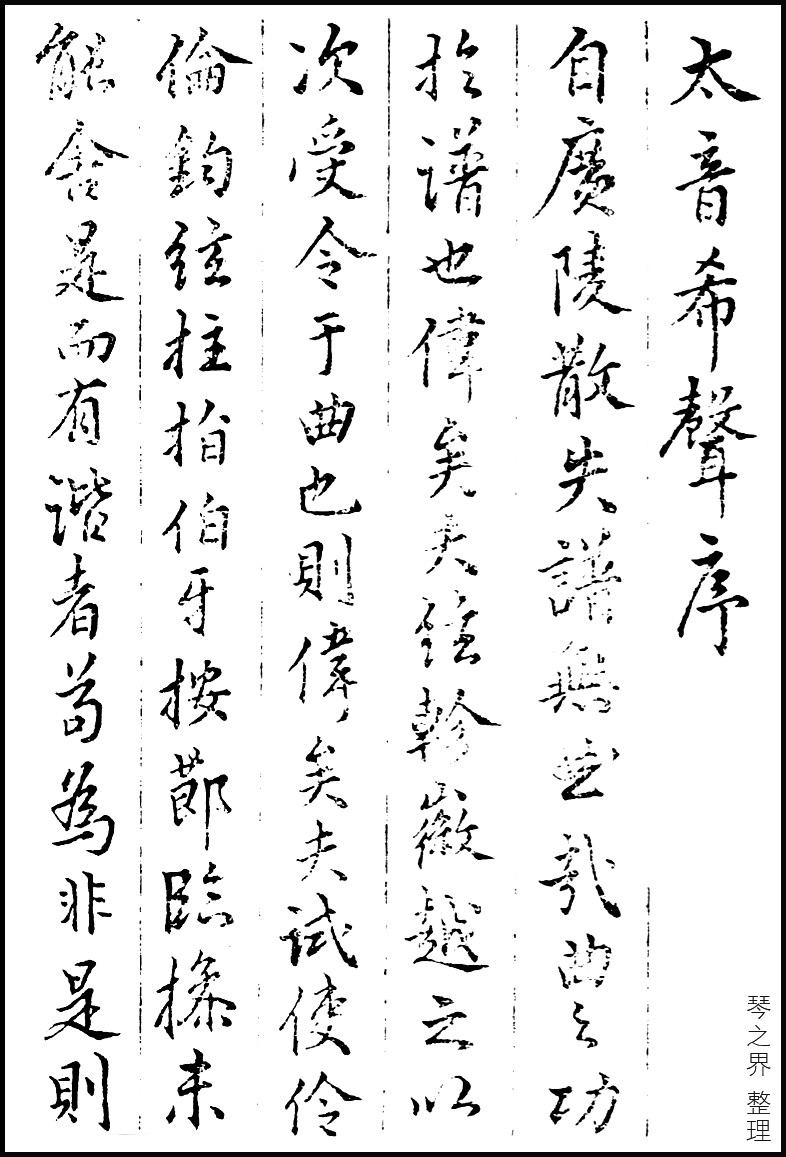 太音希聲序
自廣陵散失譜無哉曲之功
於譜也偉矣夫絃軫徽越之以
次受令于曲也則偉矣夫試使伶
倫鈞絃柱拍伯牙按節臨操未
能舍是而有諧者苟為非是則
琴之界 整理